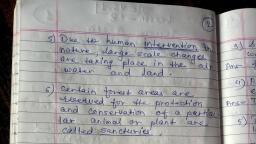 5) Due to human intervention in
nature, large scale changes
are taking place in the air
water and land.
6) Certain forest areas are
reserved for the protection
and conservation of a particu
lar animal or plant are
called sancturies.
2
Ans-
4)
Ans-
5)